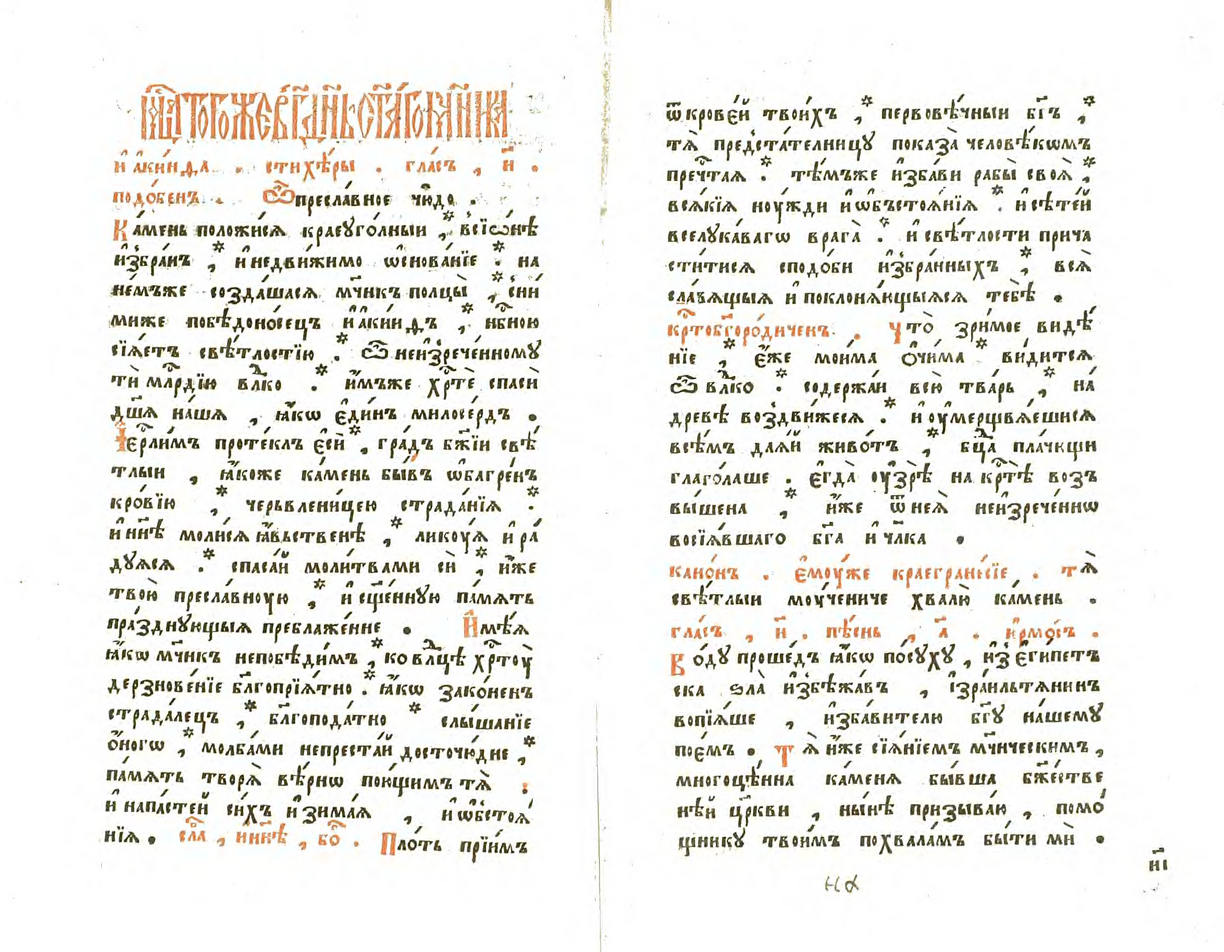 мц҃а тогоже в҃ г҃ дн҃ь ст҃а́го мч҃нка
и҆аки́нѳа . стихе́ры . гла́съ , и҃ .
подо́бенъ . Ѿ пресла́вное чю́до .
Ка́мень положи́ся краеꙋго́лныи , в сїѡ́нѣ
и҆збра́нъ , и҆ недви́жимо ѡ҆снова́нїе . на
не́мъже созда́шася мч҃нкъ полцы̀ , с ни́
миже побѣдоно́сецъ и҆аки́нѳъ , нбⷭ҇ною
сїѧ́етъ свѣ́тлостїю . Ѿ неи҆зрече́нному
тѝ млⷭ҇рдїю влⷣко . и҆́мъже хрⷭ҇тѐ спасѝ
дш҃а на́ша , ꙗ҆́кѡ є҆ди́нъ милосе́рдъ .
І҆ерⷭ҇ли́мъ проте́клъ є҆сѝ , гра́дъ бж҃їи свѣ́
тлыи , ꙗ҆́коже ка́мень бы́въ ѡ҆багре́нъ
кро́вїю , черъвлени́цею страда́нїѧ .
и҆ нн҃ѣ моли́ся ꙗ҆́вьственѣ , лику́ѧ и҆ ра́
дуѧсѧ . спаса́й моли́твами сѝ , и҆̀же
твою̀ пресла́вноую , и҆ сщ҃е́нную па́мѧть
пра́зднующыѧ преблаже́нне . И҆мѣ́ѧ
ꙗ҆́кѡ мч҃нкъ непобѣди́мъ , ко влⷣцѣ хрⷭ҇тоу̀
дерзнове́нїе бл҃гопрїѧ́тно . ꙗ҆́кѡ зако́ненъ
страда́лецъ , бл҃гопода́тно слы́шанїе
о҆́ногѡ , молба́ми непреста́й досточю́дне ,
па́мѧть творѧ̀ вѣ́рнѡ пою́щимъ тѧ̀ :
и҆ напа́стей си́хъ и҆зима́ѧ , и҆ ѡ҆бстоѧ́
нїѧ . сла́ , и҆ нн҃ѣ , бо҃ . Пло́ть прїи́мъ
ѿ крове́й твои́хъ , первовѣ́чныи бг҃ъ ,
тѧ̀ предста́телницꙋ показа̀ человѣ́кѡмъ
пречⷭ҇таѧ . тѣ́мъже и҆зба́ви рабы̀ своѧ̀ ,
всѧ́кїѧ ноу́жди и҆ ѡ҆бъстоѧ́нїѧ . и҆ сѣ́тей
вселука́вагѡ врага̀ . и҆ свѣ́тлости прича
сти́тисѧ сподо́би и҆збра́нныхъ , всѧ̀
сла́вѧщыѧ и҆ поклонѧ́ющыѧсѧ тебѣ̀ .
крⷭ҇тобг҃оро́диченъ . Что̀ зри́мое видѣ́
нїе , є҆́же мои́ма ѻ҆чи́ма ви́дитсѧ
Ѿ влⷣко . содержа́и всю̀ тва́рь , на
древѣ воздви́жесѧ . и҆ оу҆мерщвлѧ́ешисѧ
всѣ́мъ даѧ́й живо́тъ , бц҃а пла́чющи
глаго́лаше . є҆гда̀ оу҆зрѣ̀ на крⷭ҇тѣ̀ возъ
вы́шена , и҆́же ѿ неѧ̀ неи҆зрече́ннѡ
возсїѧ́вшаго бг҃а и҆ чл҃ка .
кано́нъ . є҆моу́же краегране́сїе . тѧ̀
свѣ́тлыи моу́чениче хвалю̀ ка́мень .
гла́съ , и҃ . пѣ́снь , а҃ . и҆рмо́съ .
Во́дꙋ проше́дъ ꙗ҆́кѡ по́сухꙋ , и҆з̾ є҆ги́петъ
ска ѕла̀ и҆збѣжа́въ , і҆зраи́льтѧнинъ
вопїѧ́ше , и҆зба́вителю бг҃ꙋ на́шемꙋ
пое́мъ . Тѧ̀ и҆́же сїѧ́нїемъ мч҃ническимъ ,
многоцѣ́нна ка́менѧ бы́вша бжⷭ҇тве
нѣ́й цр҃кви , ны́нѣ призыва́ю , помо́
щникꙋ твои́мъ похвала́мъ бы́ти мѝ .
н҃і
на